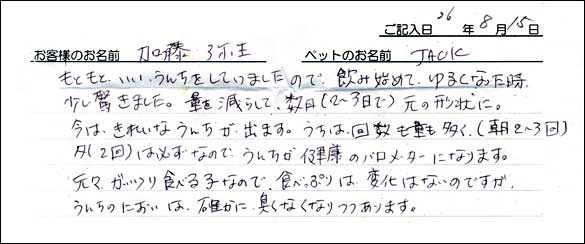 ご記入日 26 年 8 月 15 日
お客様のお名前 加藤 弥生 ペットのお名前 JACK
もともと、いい、うんちをしていましたので、飲み始めて、ゆるくなった時、
少し驚きました。量を減らして、数日(2~3日で)元の形状に。
今は、きれいなうんちが、出ます。うちは、回数も量も多く、(朝2~3回)
夕(2回)は必ずなので、うんちが健康のバロメーターになります。
元々、ガッツリ食べる子なので、食べっぷりは、変化はないのですが、
うんちのにおいは、確かに、臭くなくなりつつあります。